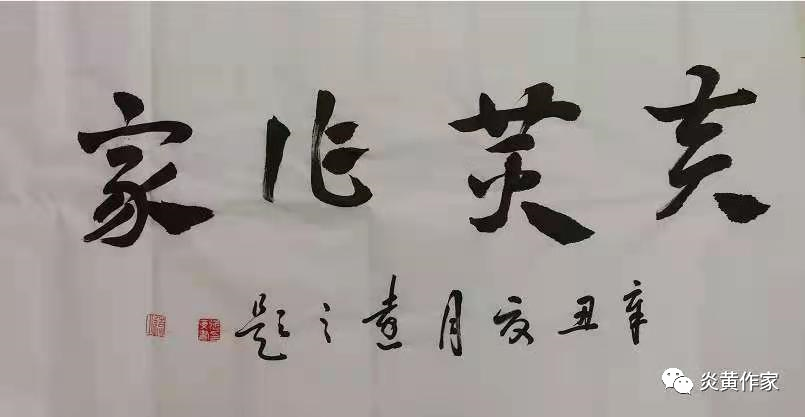 炎黄作家
辛丑夏月
之题
炎黄作家